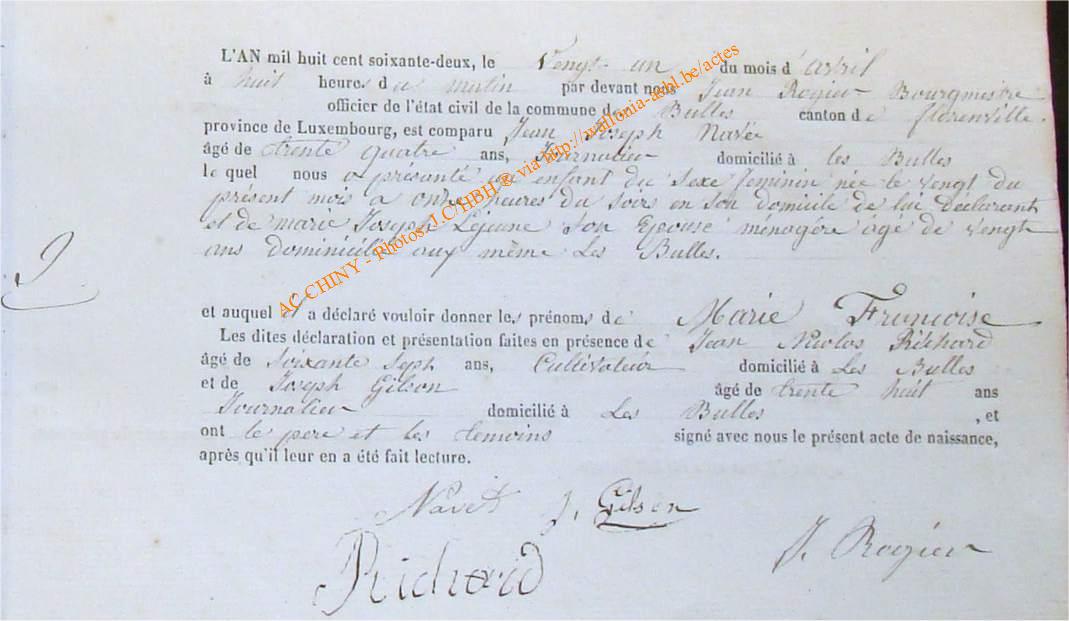 L'AN mil huit cent soixante-deux, le Vengt un du mois d'avril
à huit heures du matin par devant nous Jean Rogier Bourgmestre
officier de l'état civil de la commune de Bulles canton de florenville
province de Luxembourg, est comparu Jean Joseph Navée
âgé de trente quatre ans, Journalier domicilié à les Bulles
lequel nous a présenté un enfant du sexe feminin née le vengt du
présent mois a onze heures du Soirs en son domicile de lui Déclarant
et de marie Joseph Lejeune Son Epouse ménagère âgé de vengt
ans dominiciliés aux même Les Bulles.
et auquel il a déclaré vouloir donner les prénoms de Marie Frunçoise
Les dites déclaration et présentation faites en présence de Jean Nicolas Richard
âgé de soixante Sept ans, Cultivateur domicilié à Les Bulles
et de Joseph Gilson âgé de trente huit ans
Journalier domicilié à Les Bulles, et
ont le pere et les temoins signé avec nous le présent acte de naissance,
après qu'il leur en a été fait lecture.
J. Gilson
J. Rogier
Richard
AC CHINY - Photos:J.C/HBH ® via http://wallonia-asbl.be/actes